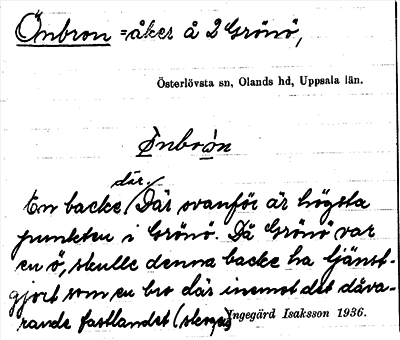 Önbron =åker å 2 Grönö,
Österlövsta sn, Olands hd, Uppsala län.
Önbron
där
En backe. Där ovanför är högsta
punkten i Grönö. Då Grönö var
en ö, skulle denna backe ha tjänst-
gjort som en bro där inemot det dåva-
rande fastlandet
Ingegärd Isaksson 1936.